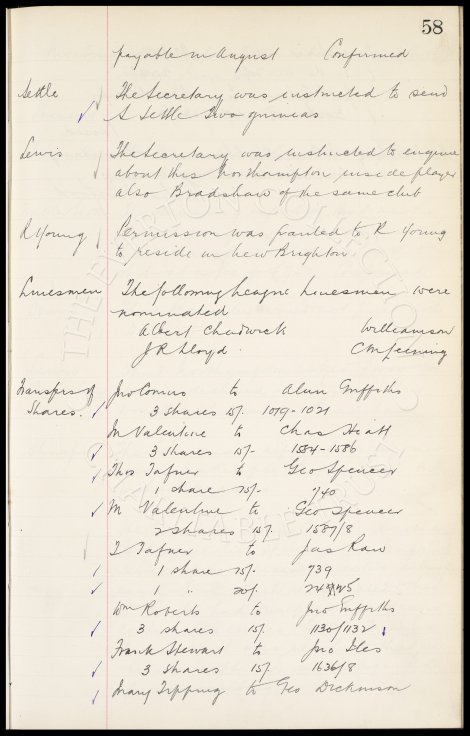 58
payable in August Confirmed
Settle The Secretary was instructed to send
A Settle Two guineas
Lewis The Secretary was instructed to enquire
about this Northampton inside player
also Bradshaw of the same club
R Young Permission was granted to R Young
to reside in New Brighton
Linesmen The following League Linesmen were
nominated
Albert Chadwick Williamson
J R Lloyd.
Transfers of Jno to Alun Griffiths
Shares. 3 shares 15/- 1019-1021
M Valentine to Chas Heatt
3 Shares 15/- 1584-1586
Thos Tafner to Geo Spencer
1 share 75/- 740
M Valentine to Geo Spencer
2 shares 15/. 1587/8
T Tafner to Jas Raw
1 share 75/- 739
1 " 20/.
Wm Roberts to Jno Griffiths
3 shares 15/. 1130/1132
Frank Stewart to Jno Iles
3 shares 15/. 1636/8
Mary Tipping to Geo Dickinson
THE EVERTON COLLECTION
CHARITABLE TRUST